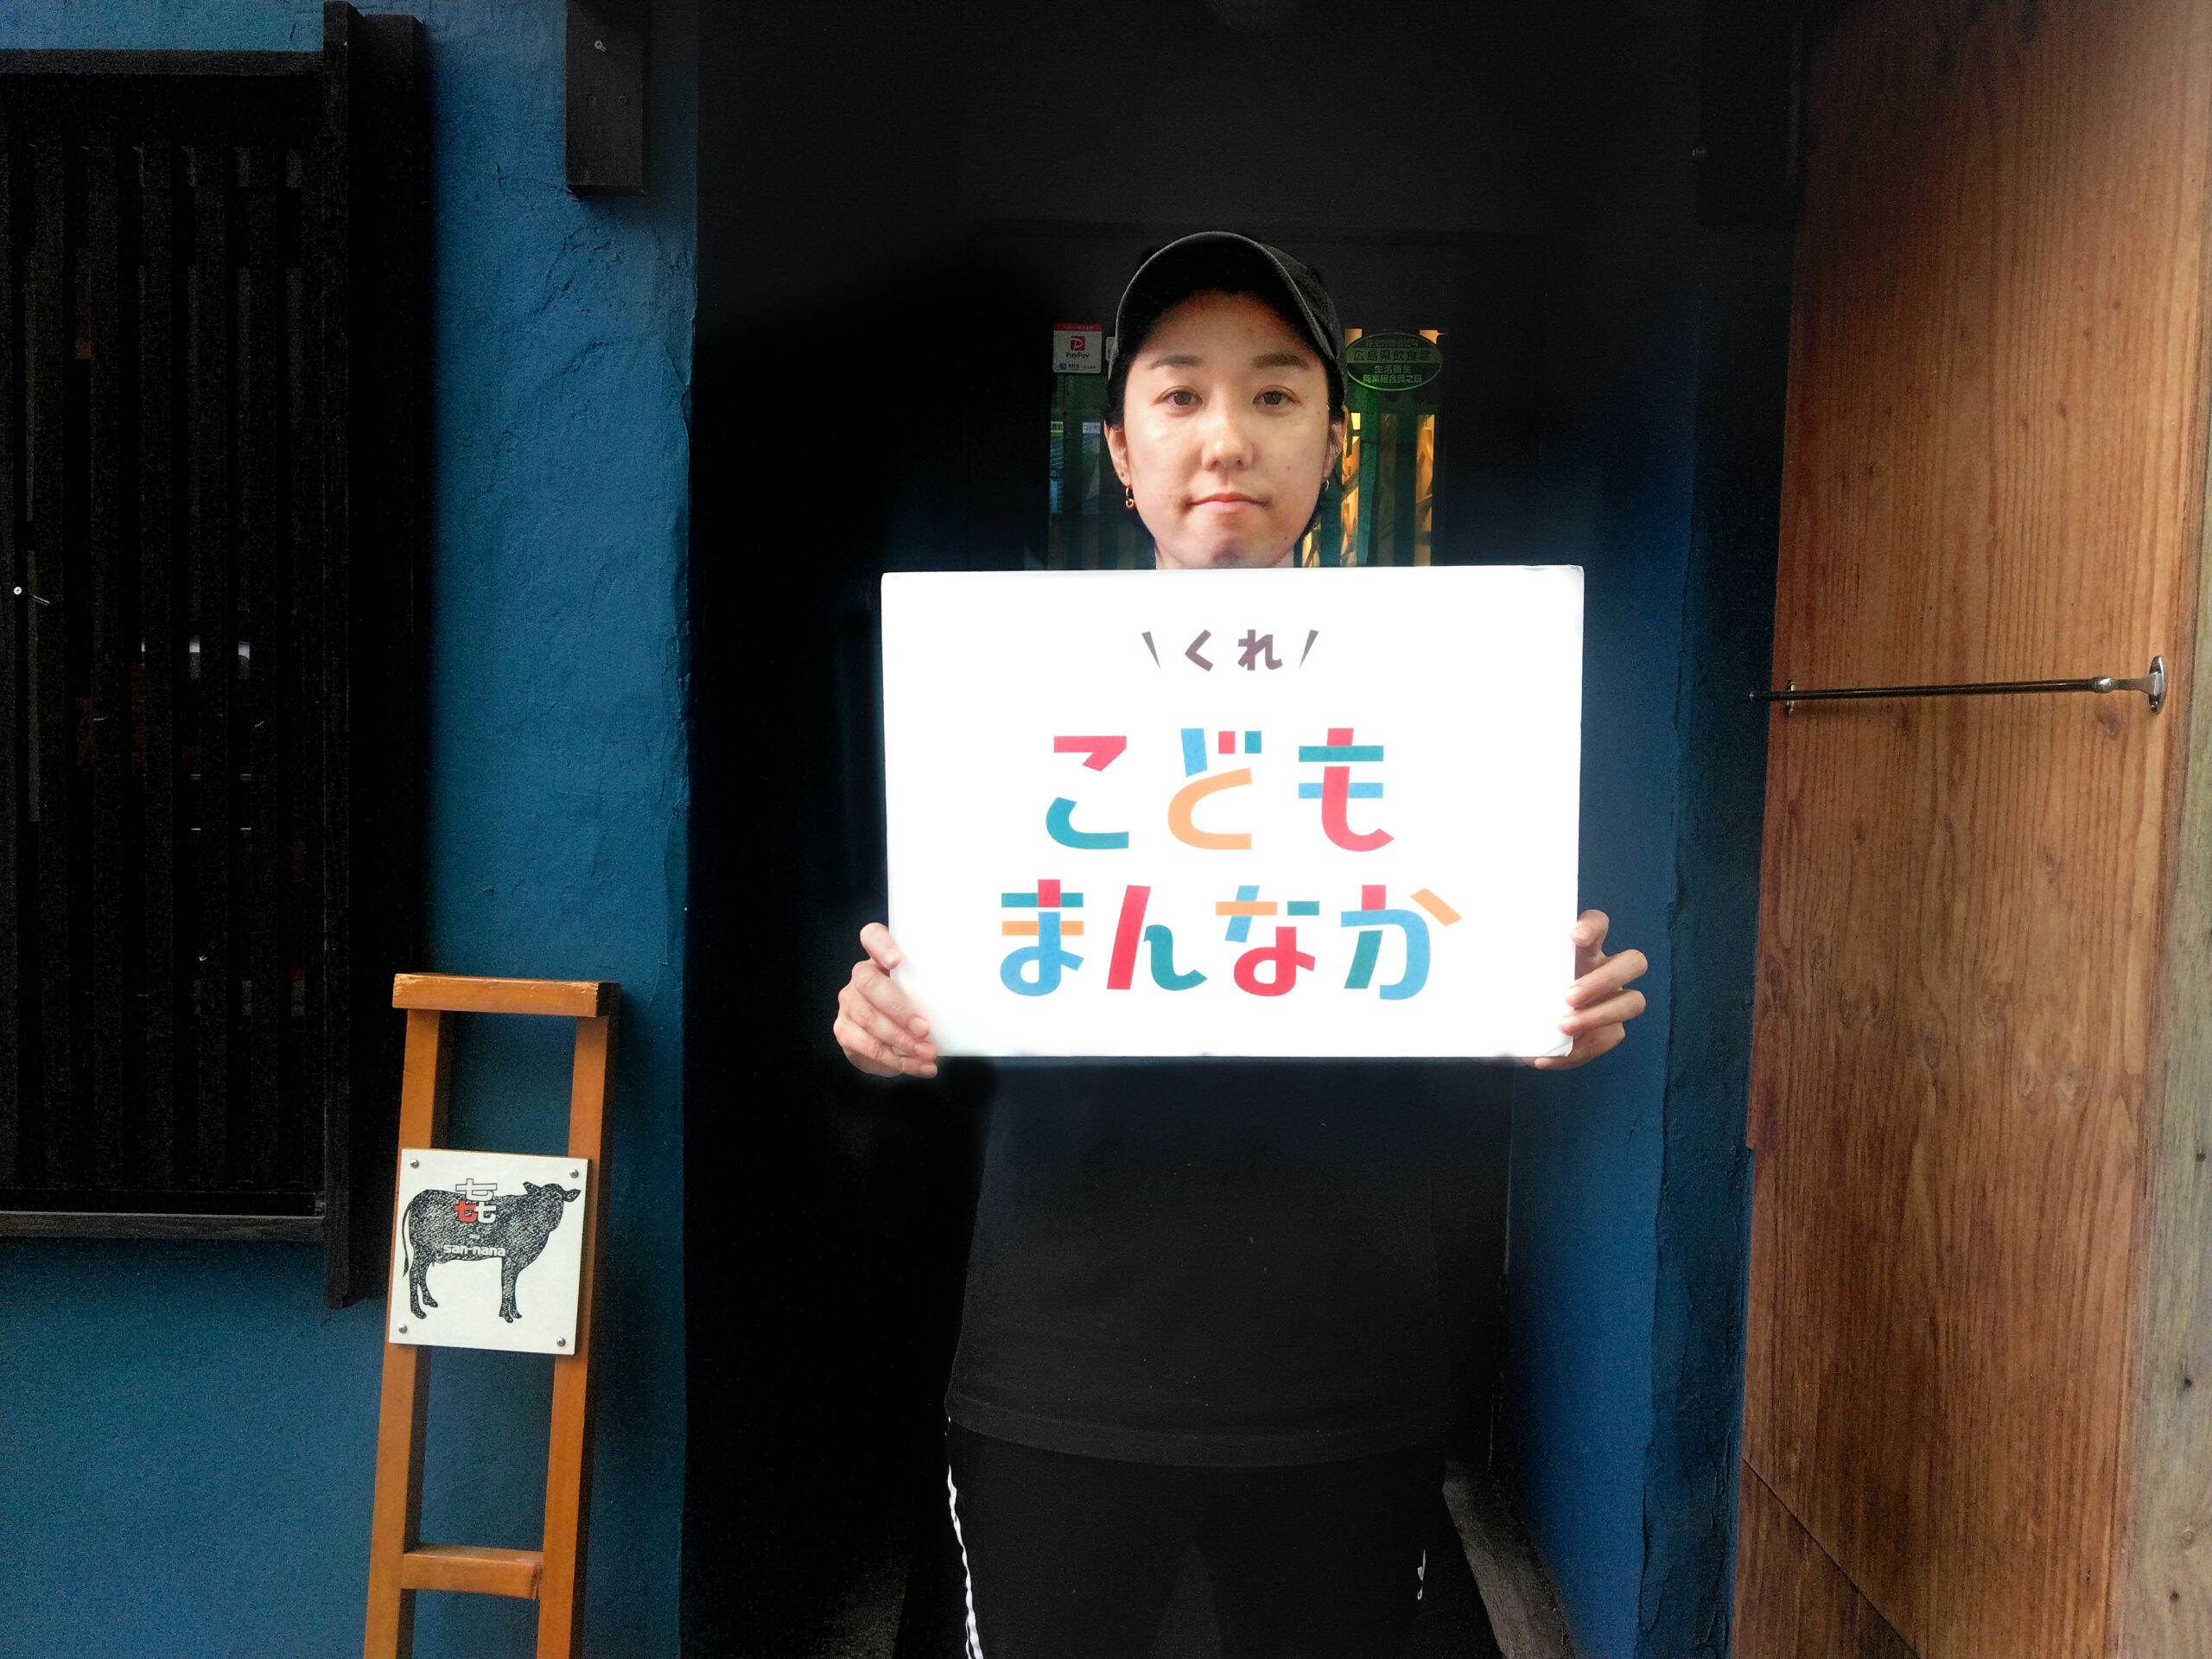 PayPay
広島県飲食業
生活衛生
同業組合員之証
\くれ/
こども
まんなか
㐂
san-nana